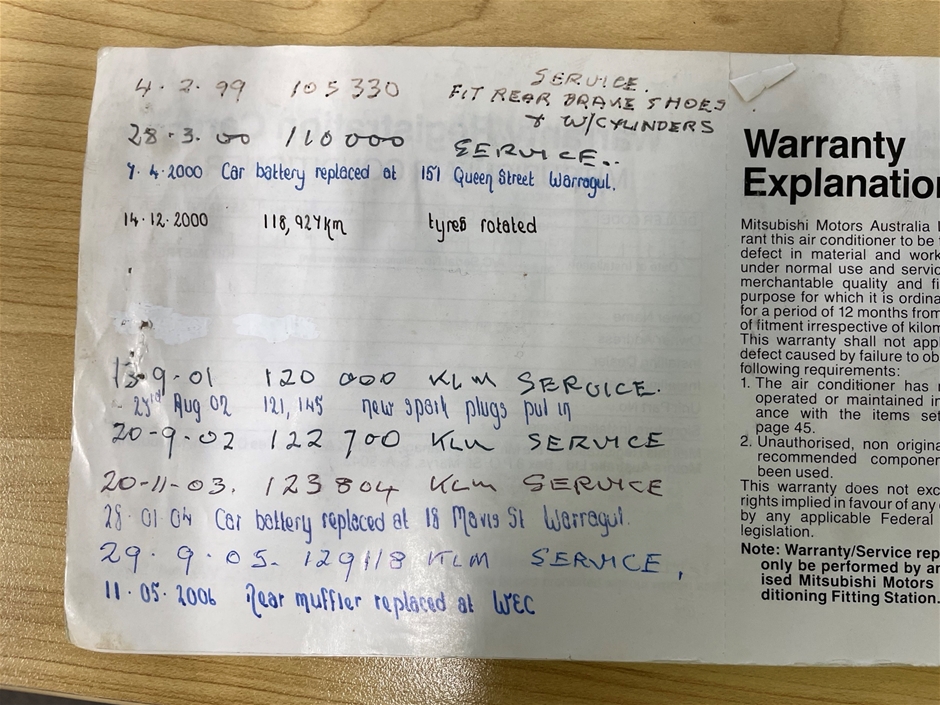 4.2.99 105330 SERVICE.
FIT REAR BRAKE SHOES
& W/CYLINDERS
28.3.00 110000 SERVICE..
7.4.2000 Car battery replaced at 151 Queen Street Warragul.
14.12.2000 118,927km tyres rotated
13.9.01 120 000 KLM SERVICE.
23rd Aug 02 121,145 new spark plugs put in
20-9-02 122 700 KLM SERVICE
20-11-03. 123804 KLM SERVICE
28.01.04 Car battery replaced at 18 Mavis St Warragul.
29.9.05. 129118 KLM SERVICE,
11.05.2006 Rear muffler replaced at WEC
Warranty
Explanation
Mitsubishi Motors Australia L
rant this air conditioner to be
defect in material and work
under normal use and servic
merchantable quality and fi
purpose for which it is ordina
for a period of 12 months from
of fitment irrespective of kilom
This warranty shall not app
defect caused by failure to ob
following requirements:
1. The air conditioner has
operated or maintained in
ance with the items set
page 45.
2. Unauthorised, non origina
recommended componen
been used.
This warranty does not exc
rights implied in favour of any
by any applicable Federal
legislation.
Note: Warranty/Service rep
only be performed by an
ised Mitsubishi Motors
ditioning Fitting Station.